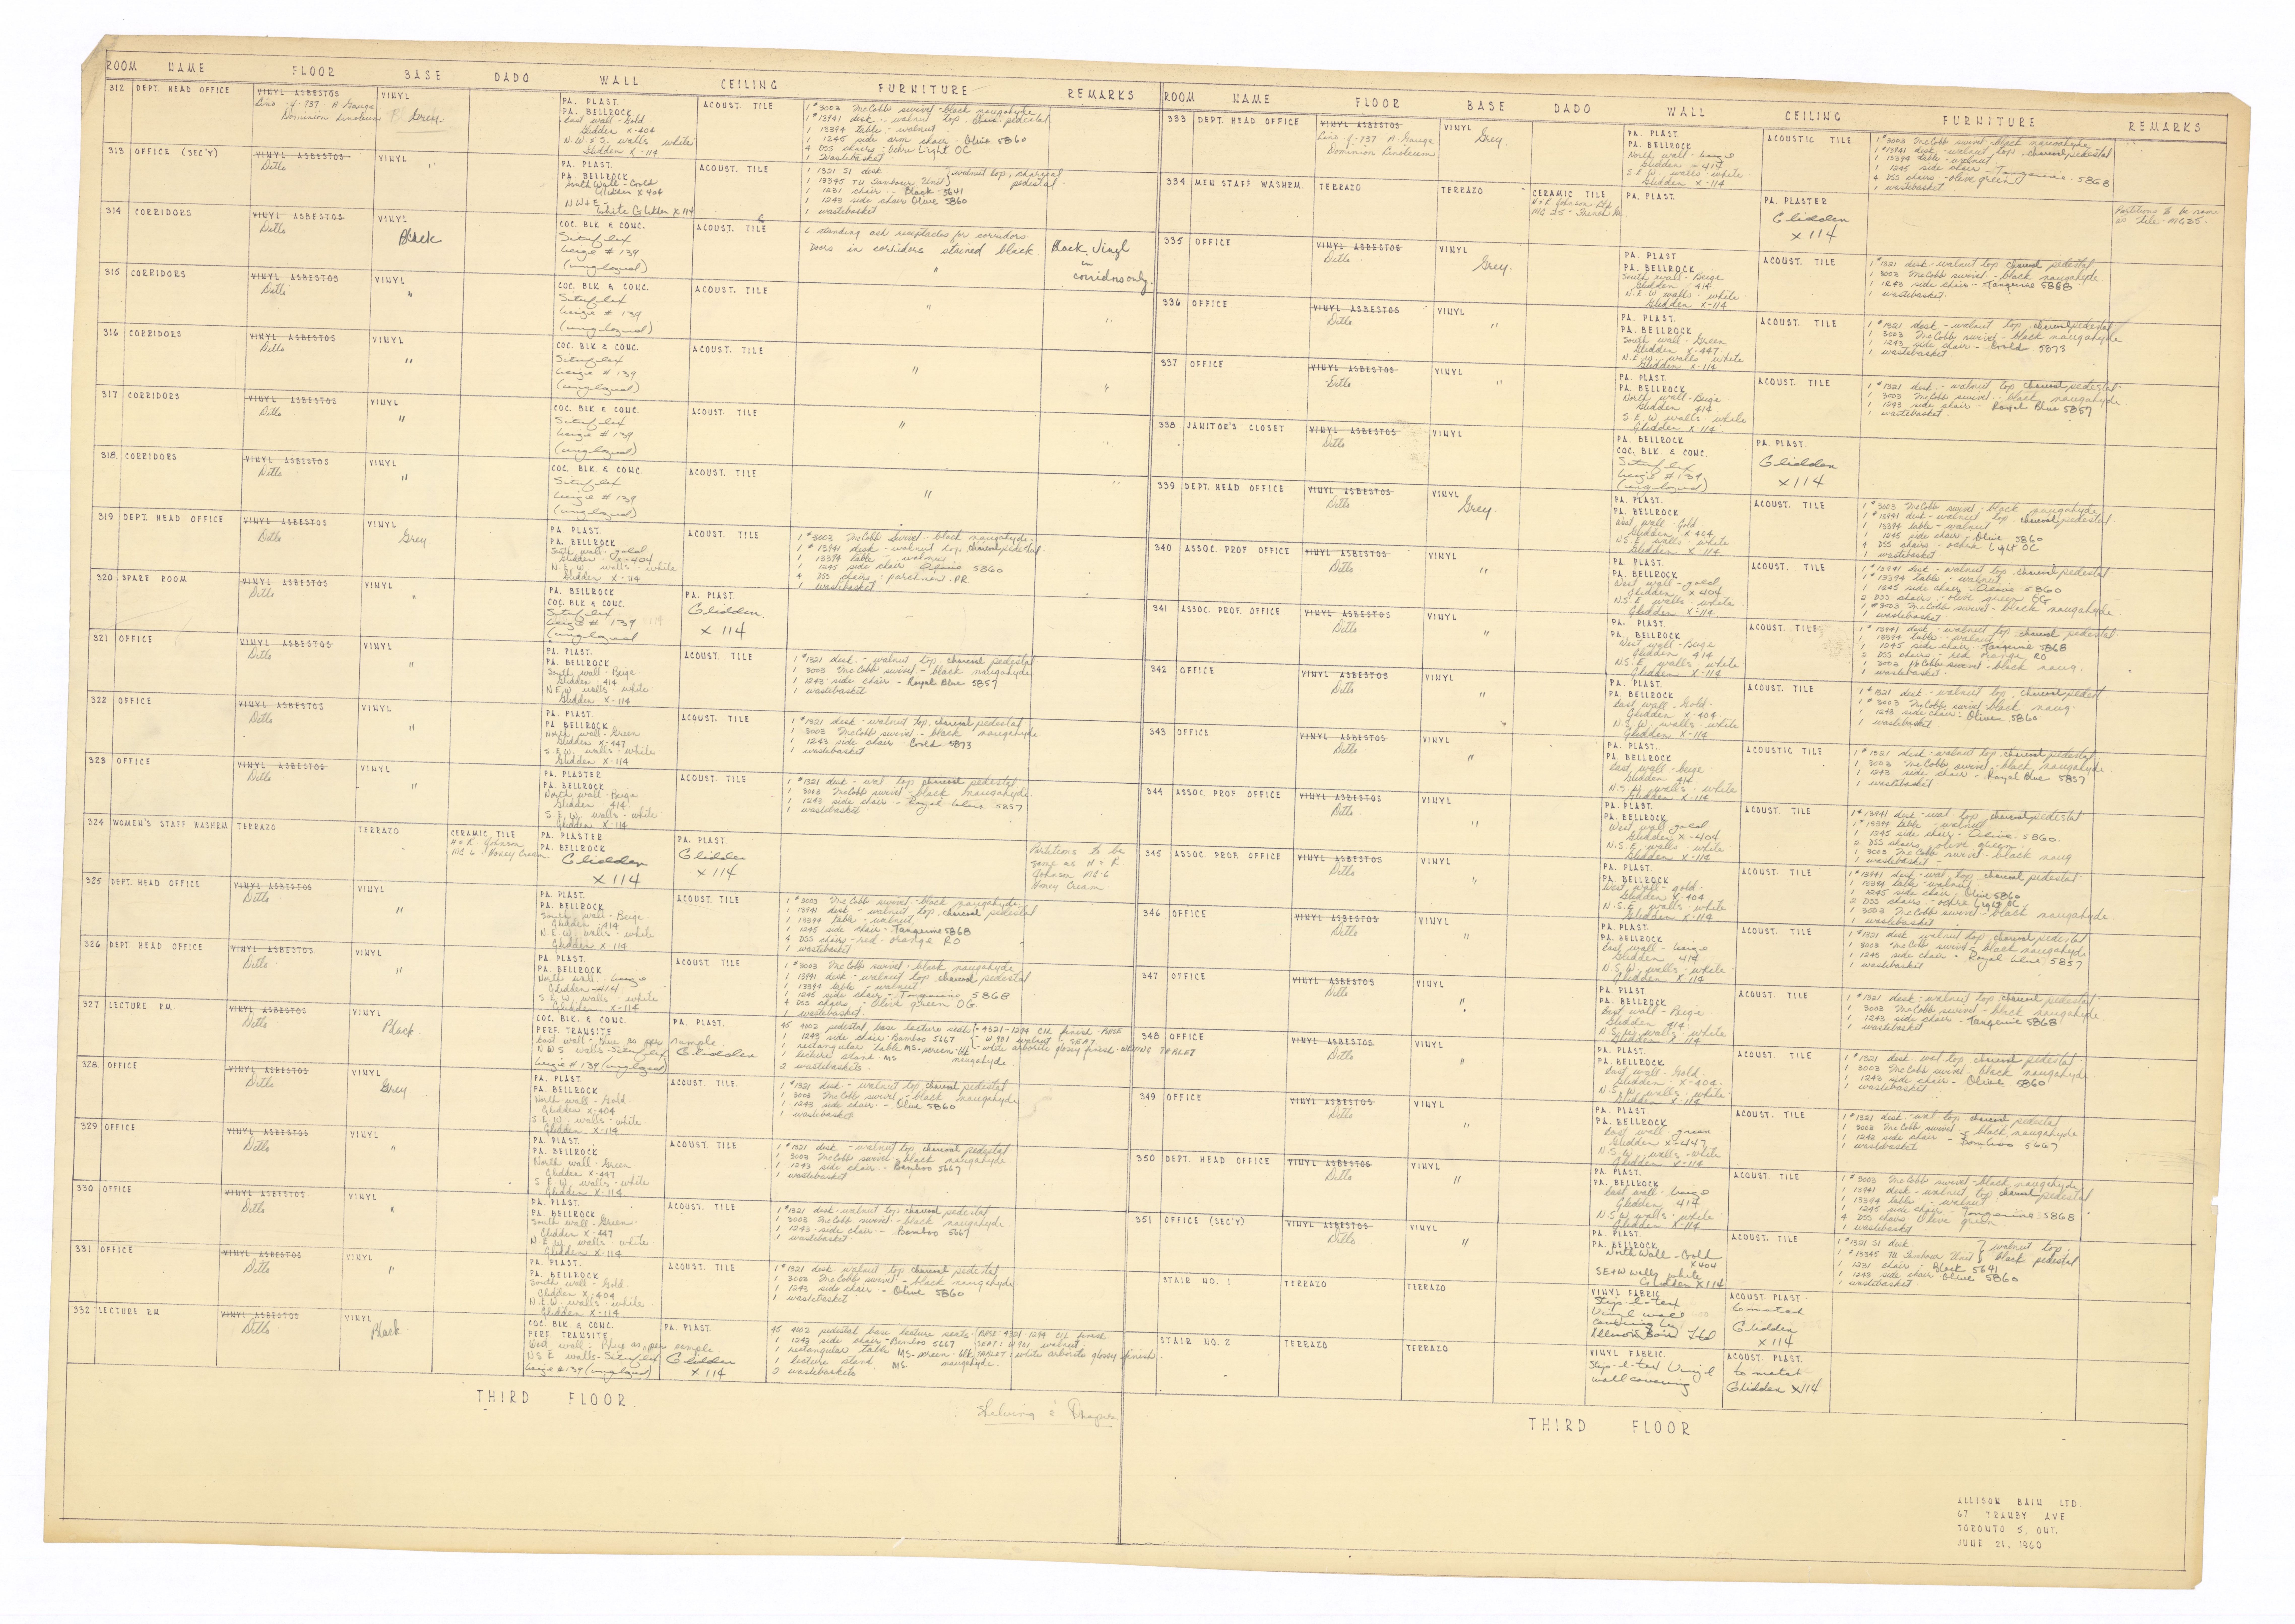 ROOM NAME FLOOR BASE DADO WALL CEILING FURNITURE REMARKS
312 DEPT. HEAD OFFICE VINYL ASBESTOS VINYL PA. PLAST. ACOUST. TILE 1 #3003 McCobb swivel - black naugahyde
Lino - 4 - 737 - A Gauge Grey PA. BELLROCK 1 #13941 desk - walnut top, charc. pedestal
Dominion Linoleum East wall - Gold 1 13394 table - walnut
Glidden X-404 1 1245 side arm chair - Olive 5860
N.W. & S. walls white 4 DSS chairs - Ochre Light OC
Glidden X-114 1 wastebasket
313 OFFICE (SEC'Y) VINYL ASBESTOS VINYL PA. PLAST. ACOUST. TILE 1 1321 S1 desk } walnut top, charcoal
Ditto " PA. BELLROCK 1 13345 TU Tambour Unit } pedestal
South Wall - Gold 1 1231 chair - Black 5641
Glidden X404 1 1243 side chair Olive 5860
NW & E - 1 wastebasket
White Glidden X114
314 CORRIDORS VINYL ASBESTOS VINYL COC. BLK & CONC. ACOUST. TILE 6 standing ash receptacles for corridors
Ditto Black Situflex Doors in corridors stained black Black Vinyl
beige #139 in
(unglazed) " corridors only.
315 CORRIDORS VINYL ASBESTOS VINYL COC. BLK & CONC. ACOUST. TILE
Ditto " Situflex
beige #139 "
(unglazed) "
316 CORRIDORS VINYL ASBESTOS VINYL COC. BLK & CONC. ACOUST. TILE
Ditto " Situflex
beige #139 "
(unglazed) "
317 CORRIDORS VINYL ASBESTOS VINYL COC. BLK & CONC. ACOUST. TILE
Ditto " Situflex "
beige #139
(unglazed) "
318 CORRIDORS VINYL ASBESTOS VINYL COC. BLK & CONC. ACOUST. TILE
Ditto " Situflex "
beige #139 "
(unglazed)
319 DEPT. HEAD OFFICE VINYL ASBESTOS VINYL PA. PLAST. ACOUST. TILE 1 #3003 McCobb Swivel - black naugahyde
Ditto Grey PA. BELLROCK 1 #13941 desk - walnut top, charcoal pedestal
South wall - gold 1 13394 table - walnut
Glidden X-404 1 1245 side chair Olive 5860
N.E.W. walls - white 4 DSS chairs - parchment PR.
Glidden X-114 1 wastebasket
320 SPARE ROOM VINYL ASBESTOS VINYL PA. BELLROCK PA. PLAST.
Ditto " COC. BLK & CONC. Glidden
Situflex X 114
beige #139
(unglazed
321 OFFICE VINYL ASBESTOS VINYL PA. PLAST. ACOUST. TILE 1 #1321 desk - walnut top charcoal pedestal
Ditto " PA. BELLROCK 1 3003 McCobb swivel - black naugahyde
South wall - Beige 1 1243 side chair - Royal Blue 5857
Glidden - 414 1 wastebasket
N.E.W. walls - white
Glidden X-114
322 OFFICE VINYL ASBESTOS VINYL PA. PLAST. ACOUST. TILE 1 #1321 desk - walnut top, charcoal pedestal
Ditto " PA. BELLROCK 1 3003 McCobb swivel - black naugahyde
North wall - Green 1 1243 side chair - Gold 5873
Glidden X-447 1 wastebasket
S.E.W. walls - white
Glidden X-114
323 OFFICE VINYL ASBESTOS VINYL PA. PLASTER ACOUST. TILE 1 #1321 desk - wal top charcoal pedestal
Ditto " PA. BELLROCK 1 3003 McCobb swivel - black naugahyde
North wall - Beige 1 1243 side chair - Royal blue 5857
Glidden - 414 1 wastebasket
S.E.W. walls - white
Glidden X-114
324 WOMEN'S STAFF WASHRM TERRAZO TERRAZO CERAMIC TILE PA. PLASTER PA. PLAST. Partitions to be
H & R Johnson PA. BELLROCK Glidden same as H & R
MC 6 - Honey Cream Glidden X 114 Johnson MC-6
X 114 Honey Cream
325 DEPT. HEAD OFFICE VINYL ASBESTOS VINYL PA. PLAST. ACOUST. TILE 1 #3003 McCobb swivel - black naugahyde
Ditto " PA. BELLROCK 1 13941 desk - walnut top, charcoal pedestal
South wall - Beige 1 13394 table - walnut
Glidden - 414 1 1245 side chair - Tangerine 5868
N.E.W. walls - white 4 DSS chairs - red - orange RO
Glidden X-114 1 wastebasket
326 DEPT HEAD OFFICE VINYL ASBESTOS VINYL PA. PLAST. ACOUST. TILE 1 #3003 McCobb swivel - black naugahyde
Ditto " PA. BELLROCK 1 13941 desk - walnut top charcoal pedestal
North wall - beige 1 13394 table - walnut
Glidden - 414 1 1245 side chair - Tangerine 5868
S.E.W. walls - white 4 DSS chairs - Olive green OG
Glidden X-114 1 wastebasket
327 LECTURE RM. VINYL ASBESTOS VINYL COC. BLK. & CONC. PA. PLAST. 45 4102 pedestal base lecture seats - 4321-1294 CIL finish - BASE
Ditto Black PERF. TRANSITE 1 1243 side chair - Bamboo 5667 - W 901 walnut - SEAT
East wall - Blue as per sample 1 rectangular table MS-screen - blk - white arborite glossy finish - WRITING TABLET
NWS walls - Situflex Glidden 1 lecture stand - MS naugahyde
beige #139 (unglazed) 2 wastebaskets
328 OFFICE VINYL ASBESTOS VINYL PA. PLAST. ACOUST. TILE. 1 #1321 desk - walnut top, charcoal pedestal
Ditto Grey PA. BELLROCK 1 3003 McCobb swivel - black naugahyde
North wall - Gold 1 1243 side chair - Olive 5860
Glidden X-404 1 wastebasket
S.E.W. walls - white
Glidden X-114
329 OFFICE VINYL ASBESTOS VINYL PA. PLAST. ACOUST. TILE 1 #1321 desk - walnut top charcoal pedestal
Ditto " PA. BELLROCK 1 3003 McCobb swivel - black naugahyde
North wall - Green 1 1243 side chair - Bamboo 5667
Glidden X-447 1 wastebasket
S.E.W. walls - white
Glidden X-114
330 OFFICE VINYL ASBESTOS VINYL PA. PLAST. ACOUST. TILE 1 #1321 desk - walnut top charcoal pedestal
Ditto " PA. BELLROCK 1 3003 McCobb swivel - black naugahyde
South wall - Green 1 1243 side chair - Bamboo 5667
Glidden X-447 1 wastebasket
N.E.W. walls - white
Glidden X-114
331 OFFICE VINYL ASBESTOS VINYL PA. PLAST. ACOUST. TILE 1 #1321 desk walnut top charcoal pedestal
Ditto " PA. BELLROCK 1 3003 McCobb swivel - black naugahyde
South wall - Gold 1 1243 side chair - Olive 5860
Glidden X-404 1 wastebasket
N.E.W. walls - white
Glidden X-114
332 LECTURE RM VINYL ASBESTOS VINYL COC. BLK. & CONC. PA. PLAST. 45 4102 pedestal base lecture seats - BASE 4321 1294 CIL finish
Ditto Black PERF. TRANSITE 1 1243 side chair - Bamboo 5667 SEAT: W 901 walnut
West wall - Blue as per sample 1 rectangular table MS-screen - blk TABLET: white arborite glossy finish.
N S E walls - Situflex Glidden 1 lecture stand MS. naugahyde.
beige #139 (unglazed) X 114 2 wastebaskets
THIRD FLOOR.
Shelving & Drapes
ROOM NAME FLOOR BASE DADO WALL CEILING FURNITURE REMARKS
333 DEPT. HEAD OFFICE VINYL ASBESTOS VINYL PA. PLAST. ACOUSTIC TILE 1 #3003 McCobb swivel - black naugahyde
Lino - 4 - 737 A Gauge Grey PA. BELLROCK 1 #13941 desk - walnut top, charcoal pedestal
Dominion Linoleum North wall - beige 1 13394 table - walnut
Glidden - 414 1 1245 side chair - Tangerine 5868
S E W. walls - white 4 DSS chairs - olive green
Glidden X-114 1 wastebasket
334 MEN STAFF WASHRM. TERRAZO TERRAZO CERAMIC TILE PA. PLAST. PA. PLASTER Partitions to be same
H & R Johnson Ltd Glidden as tile - MC25.
MC 25 - X 114
335 OFFICE VINYL ASBESTOS VINYL PA. PLAST ACOUST. TILE 1 #1321 desk - walnut top charcoal pedestal
Ditto Grey. PA. BELLROCK 1 3003 McCobb swivel - black naugahyde
South wall - Beige 1 1243 side chair - Tangerine 5868
Glidden 414 1 wastebasket
N.E.W. walls - white
Glidden X-114
336 OFFICE VINYL ASBESTOS VINYL PA. PLAST. ACOUST. TILE 1 #1321 desk - walnut top, charcoal pedestal
Ditto " PA. BELLROCK 1 3003 McCobb swivel - black naugahyde
South wall - Green 1 1243 side chair - Gold 5873
Glidden X-447 1 wastebasket
N.E.W. walls white
Glidden X-114
337 OFFICE VINYL ASBESTOS VINYL PA. PLAST. ACOUST. TILE 1 #1321 desk - walnut top charcoal pedestal
Ditto " PA. BELLROCK 1 3003 McCobb swivel - black naugahyde
North wall - Beige 1 1243 side chair - Royal Blue 5857
Glidden 414 1 wastebasket
S E.W. walls - white
Glidden X-114
338 JANITOR'S CLOSET VINYL ASBESTOS VINYL PA. BELLROCK PA. PLAST.
Ditto COC. BLK & CONC. Glidden
Situflex X114
beige #139
(unglazed)
339 DEPT. HEAD OFFICE VINYL ASBESTOS VINYL PA. PLAST. ACOUST. TILE 1 #3003 McCobb swivel - black naugahyde
Ditto Grey. PA. BELLROCK 1 #13941 desk - walnut top charcoal pedestal
West wall Gold 1 13394 table - walnut
Glidden X 404 1 1245 side chair - Olive 5860
N.S.E. walls - white 4 DSS chairs - ochre Light OC
Glidden X 114 1 wastebasket
340 ASSOC. PROF OFFICE VINYL ASBESTOS VINYL PA. PLAST. ACOUST. TILE 1 #13941 desk - walnut top charcoal pedestal
Ditto " PA. BELLROCK 1 #13394 table - walnut
West wall - gold 1 1245 side chair - Olive 5860
Glidden X404 2 DSS chairs - olive green OG
N.S.E. walls - white 1 #3003 McCobb swivel - black naugahyde
Glidden X-114 1 wastebasket
341 ASSOC. PROF. OFFICE VINYL ASBESTOS VINYL PA. PLAST. ACOUST. TILE 1 #13941 desk - walnut top charcoal pedestal
Ditto " PA. BELLROCK 1 13394 table - walnut
West wall - Beige 1 1245 side chair - Tangerine 5868
Glidden 414 2 DSS chairs - red orange RO
N.S.E. walls - white 1 3003 McCobb swivel - black naug.
Glidden X-114 1 wastebasket
342 OFFICE VINYL ASBESTOS VINYL PA. PLAST. ACOUST. TILE 1 #1321 desk - walnut top, charcoal pedest
Ditto " PA. BELLROCK 1 #3003 McCobb swivel - black naug.
East wall - Gold 1 1243 side chair - Olive 5860
Glidden X-404 1 wastebasket
N.S.W. walls - white
Glidden X-114
343 OFFICE VINYL ASBESTOS VINYL PA. PLAST. ACOUSTIC TILE 1 #1321 desk - walnut top, charcoal pedestal
Ditto " PA. BELLROCK 1 3003 McCobb swivel - black naugahyde
East wall - beige 1 1243 side chair - Royal Blue 5857
Glidden 414 1 wastebasket
N.S.W. walls - white
Glidden X-114
344 ASSOC. PROF OFFICE VINYL ASBESTOS VINYL PA. PLAST. ACOUST. TILE 1 #13941 desk - wal top charcoal pedestal
Ditto " PA. BELLROCK 1 #13394 table - walnut
West wall gold 1 1245 side chair - Olive 5860.
Glidden X-404 2 DSS chairs olive green
N.S.E. walls - white 1 3003 McCobb swivel - black naug
Glidden X-114 1 wastebasket
345 ASSOC. PROF. OFFICE VINYL ASBESTOS VINYL PA. PLAST. ACOUST. TILE 1 #13941 desk - wal top, charcoal pedestal
Ditto " PA. BELLROCK 1 13394 table - walnut
West wall - gold 1 1245 side chair - Olive 5860
Glidden X 404 2 DSS chairs - ochre Light OC
N.S.E. walls - white 1 3003 McCobb swivel - black naugahyde
Glidden X-114 1 wastebasket
346 OFFICE VINYL ASBESTOS VINYL PA. PLAST. ACOUST. TILE 1 #1321 desk walnut top charcoal pedestal
Ditto " PA. BELLROCK 1 3003 McCobb swivel - black naugahyde
East wall - beige 1 1243 side chair - Royal blue 5857
Glidden 414 1 wastebasket
N.S.W. walls - white
Glidden X-114
347 OFFICE VINYL ASBESTOS VINYL PA. PLAST. ACOUST. TILE 1 #1321 desk - walnut top, charcoal pedestal
Ditto " PA. BELLROCK 1 3003 McCobb swivel - black naugahyde
East wall - Beige 1 1243 side chair - Tangerine 5868
Glidden 414 1 wastebasket
N.S.W. walls - white
Glidden X-114
348 OFFICE VINYL ASBESTOS VINYL PA. PLAST. ACOUST. TILE 1 #1321 desk wal top charcoal pedestal
Ditto " PA. BELLROCK 1 3003 McCobb swivel - black naugahyde
East wall - Gold 1 1243 side chair - Olive 5860
Glidden X-404 1 wastebasket
N.S.W. walls - white
Glidden X-114
349 OFFICE VINYL ASBESTOS VINYL PA. PLAST ACOUST. TILE 1 #1321 desk - wal top charcoal pedestal
Ditto " PA. BELLROCK 1 3003 McCobb swivel - black naugahyde
East wall green 1 1243 side chair - Bamboo 5667
Glidden X-447 1 wastebasket
N.S.W. walls - white
Glidden X-114
350 DEPT. HEAD OFFICE VINYL ASBESTOS VINYL PA. PLAST. ACOUST. TILE 1 #3003 McCobb swivel - black naugahyde
Ditto " PA. BELLROCK 1 13941 desk - walnut top charcoal pedestal
East wall - beige 1 13394 table - walnut
Glidden 414 1 1245 side chair - Tangerine 5868
N.S.W walls - white 4 DSS chairs Olive green
Glidden X-114 1 wastebasket
351 OFFICE (SEC'Y) VINYL ASBESTOS VINYL PA. PLAST. ACOUST. TILE 1 #1321 S1 desk } walnut top,
Ditto " PA. BELLROCK 1 #13345 TU Tambour Unit } black pedestal
North Wall - Gold 1 1231 chair - Black 5641
X404 1 1243 side chair - Olive 5860
SE+W walls white 1 wastebasket
Glidden X114
STAIR NO. 1 TERRAZO TERRAZO VINYL FABRIC ACOUST. PLAST.
to match
Vinyl wall Glidden
covering by X 114
Allison Bain Ltd
STAIR NO. 2 TERRAZO TERRAZO VINYL FABRIC. ACOUST. PLAST.
Vinyl to match
wall covering Glidden X114
THIRD FLOOR
ALLISON BAIN LTD.
67 TRANBY AVE
TORONTO 5, ONT.
JUNE 21, 1960